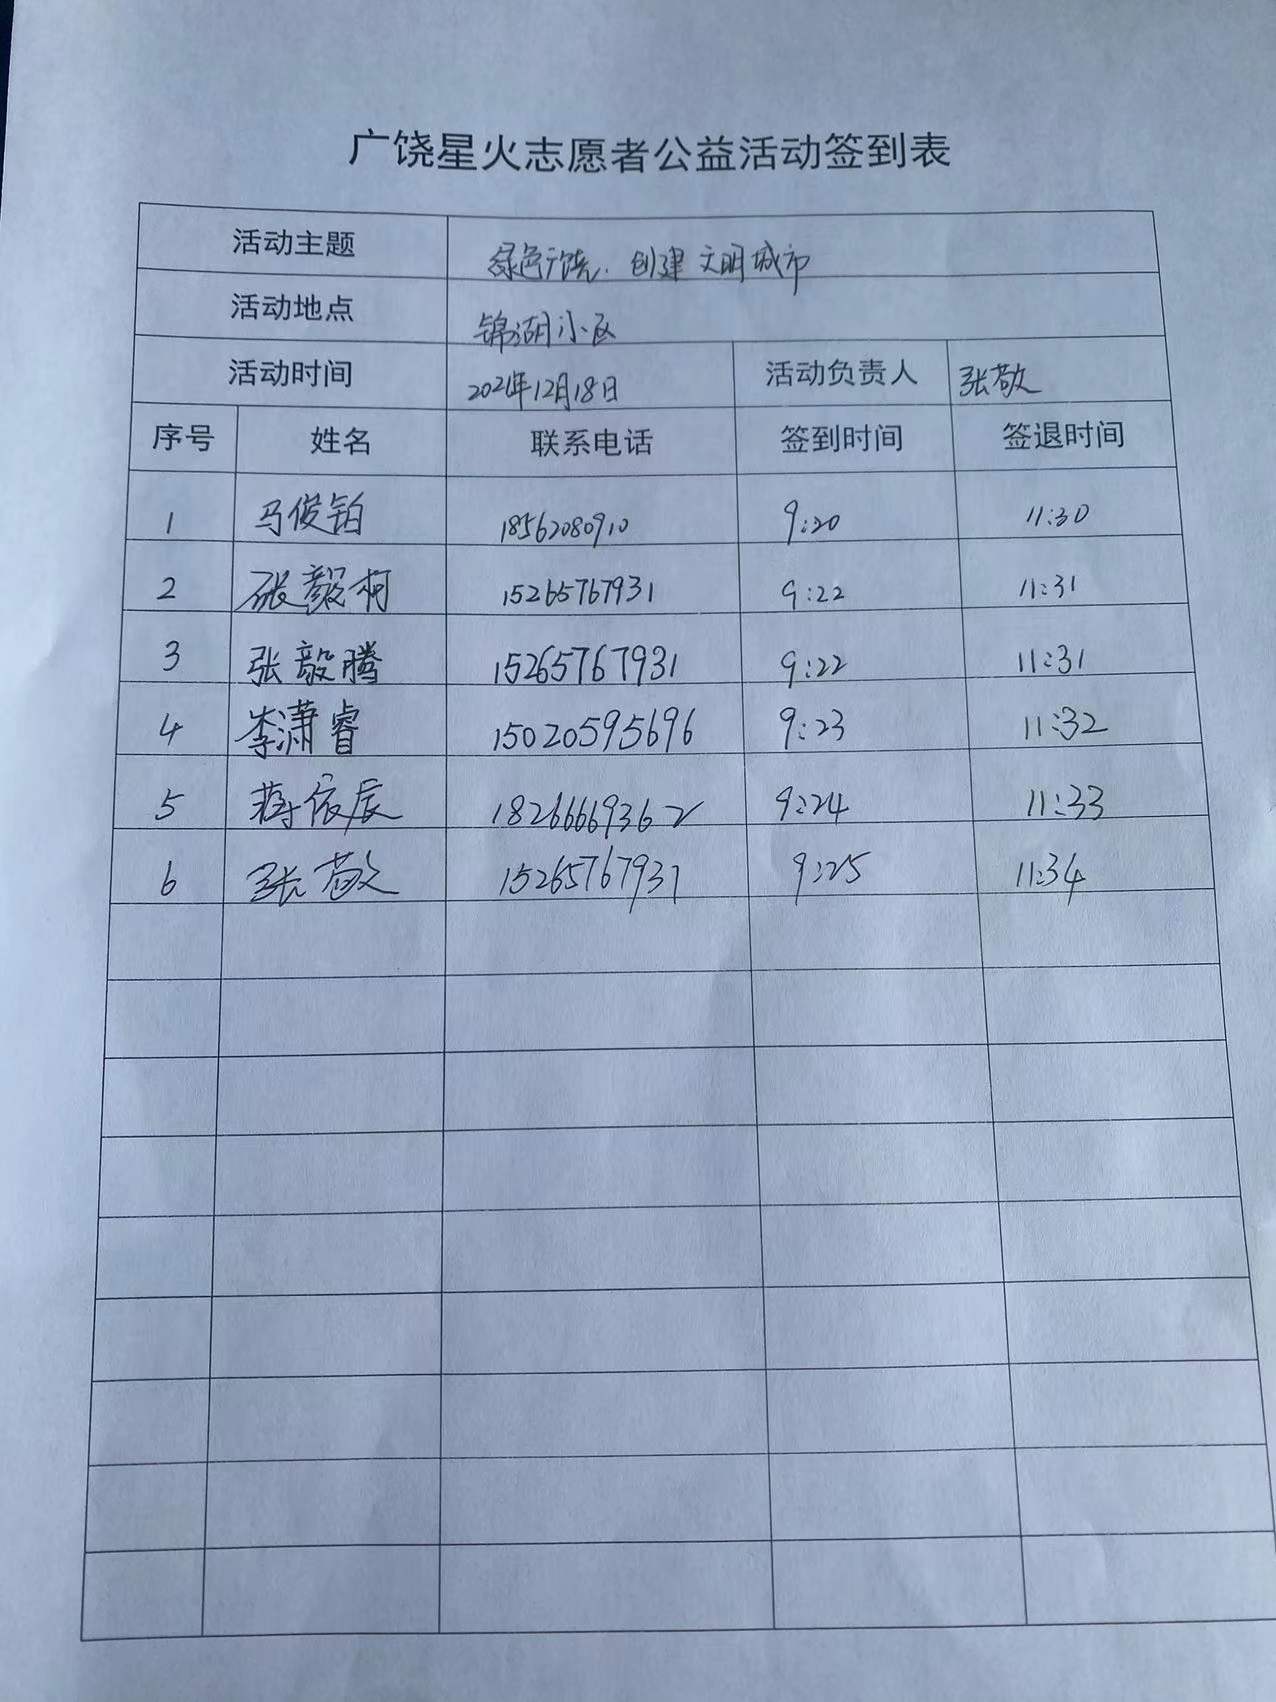 广饶星火志愿者公益活动签到表
活动主题 绿色广饶.创建文明城市
活动地点 锦湖小区
活动时间 2021年12月18日 活动负责人 张敬
序号 姓名 联系电话 签到时间 签退时间
1 马俊铂 18562080910 9:20 11:30
2 张毅柯 15265767931 9:22 11:31
3 张毅腾 15265767931 9:22 11:31
4 李潇睿 15020595696 9:23 11:32
5 蒋依辰 18266669362 9:24 11:33
6 张敬 15265767931 9:25 11:34